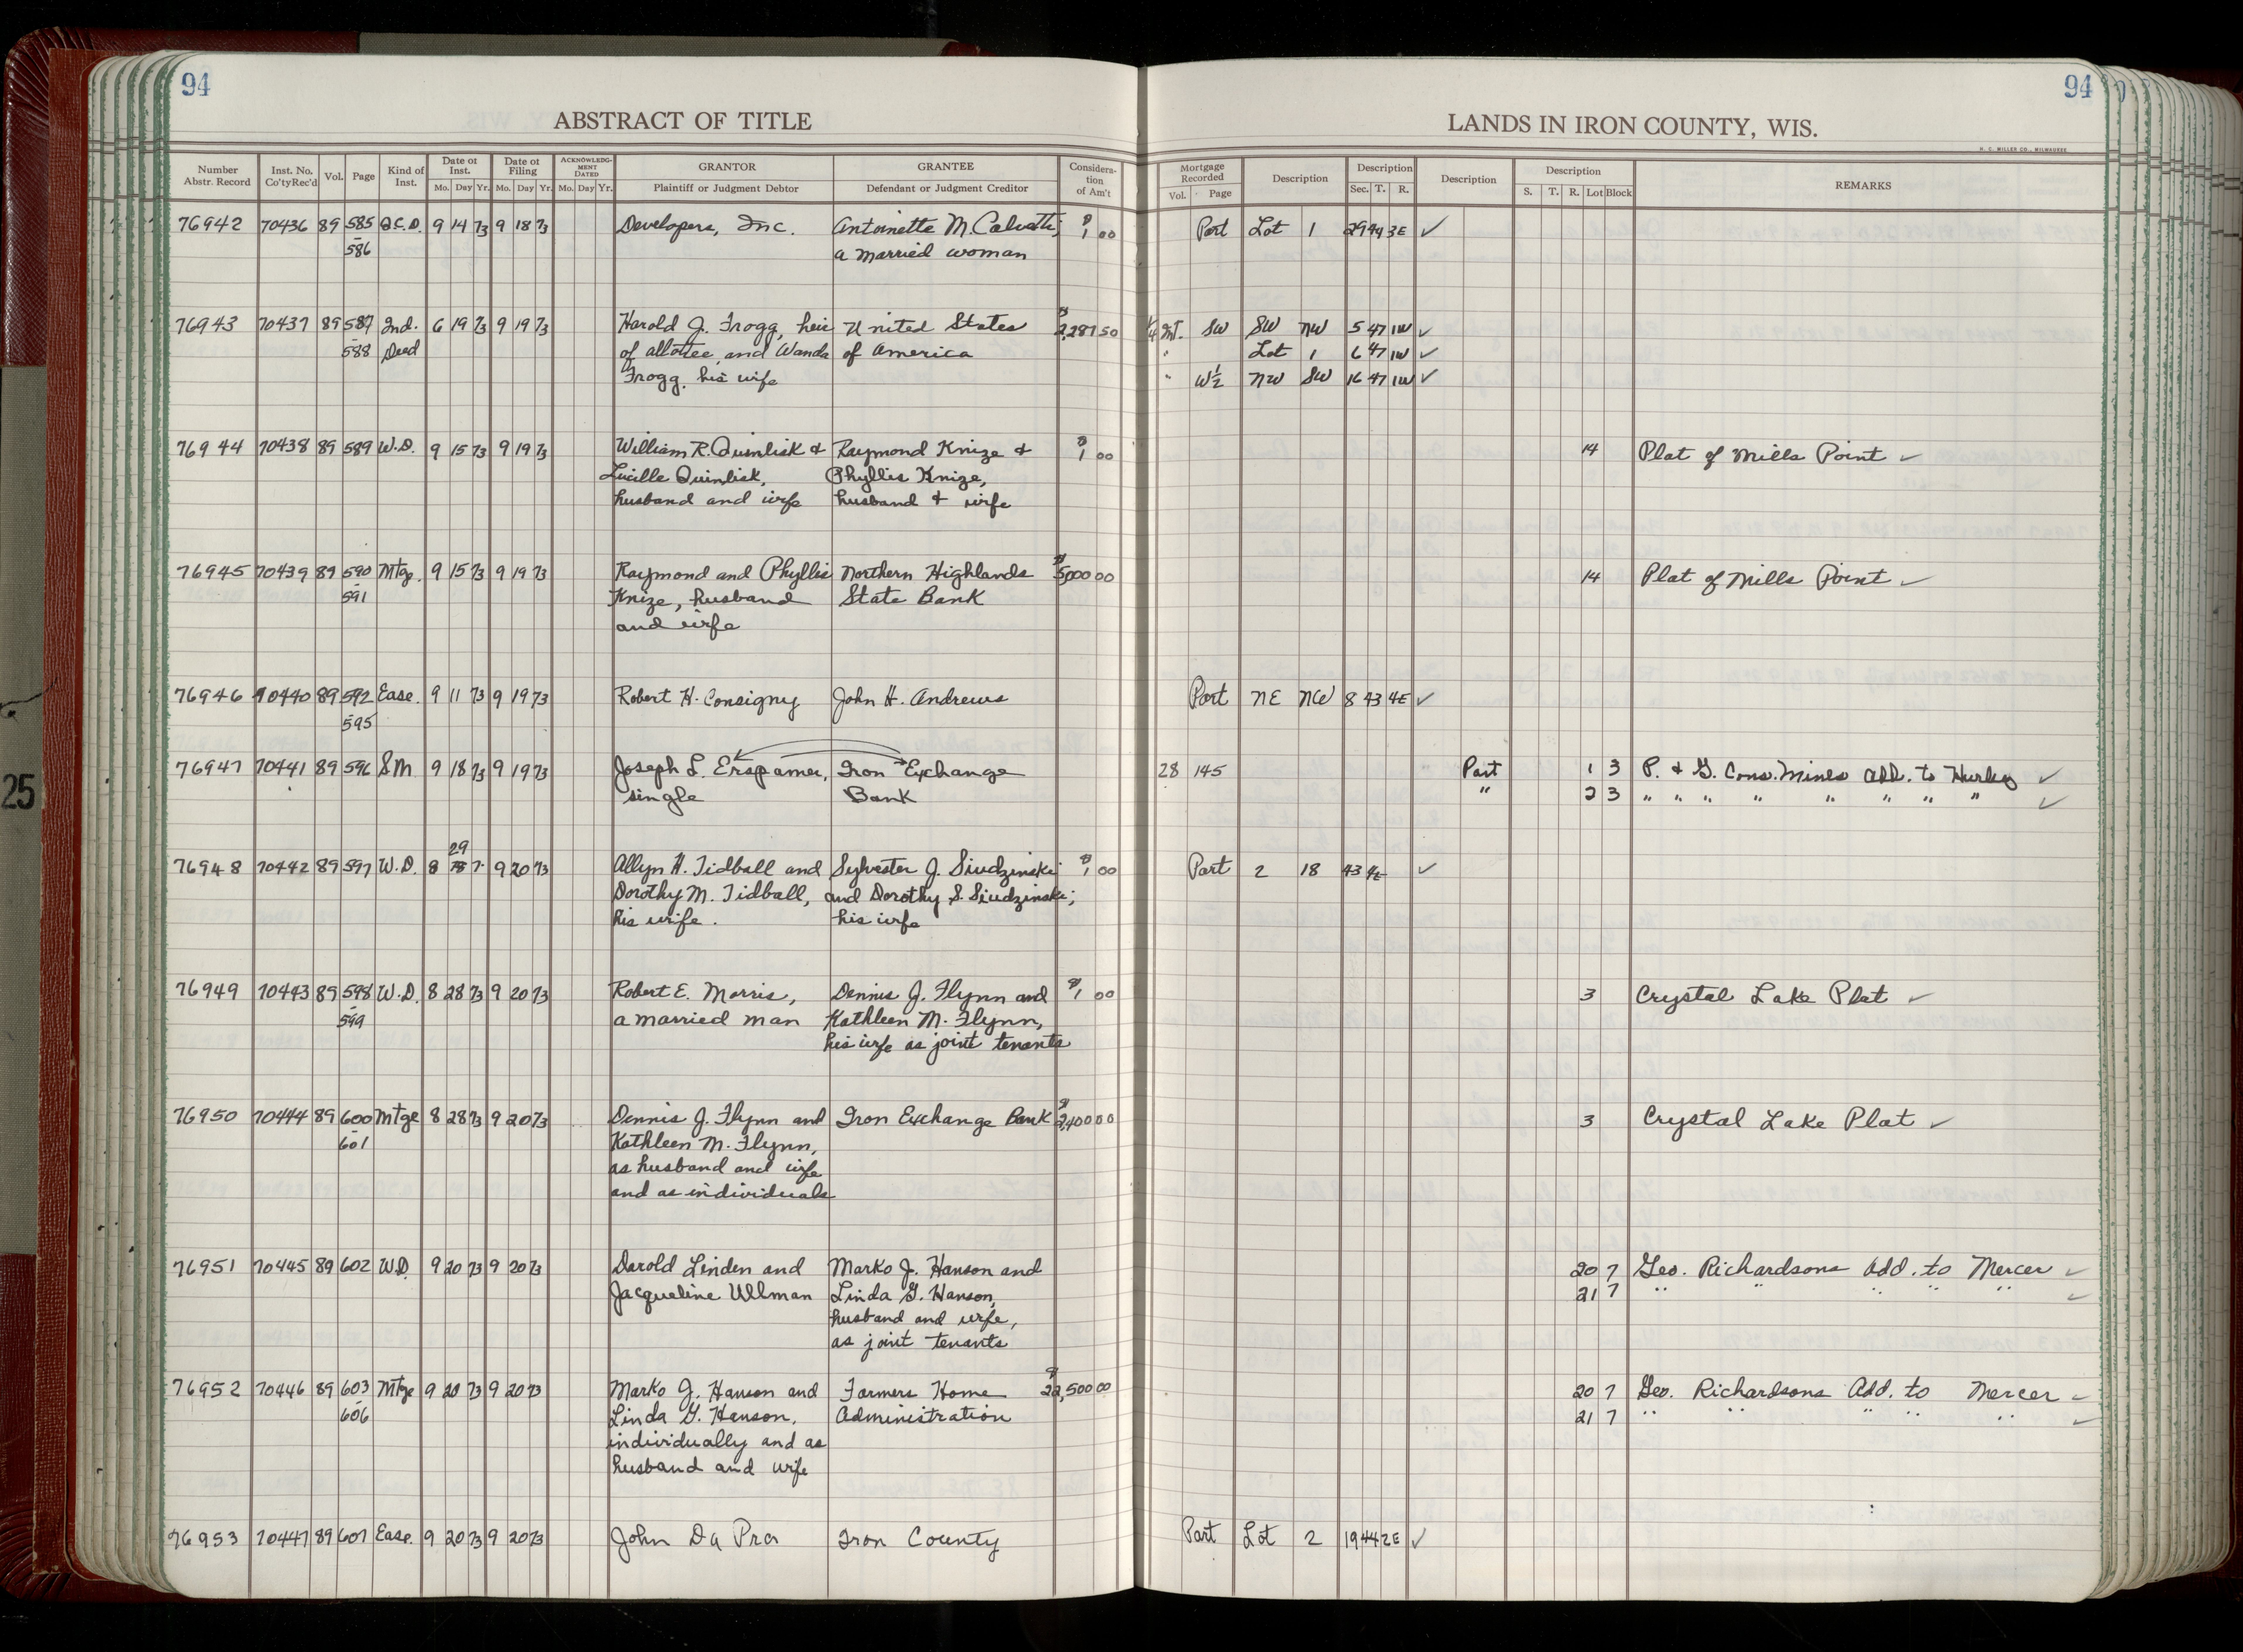 94
94
ABSTRACT OF TITLE
LANDS IN IRON COUNTY, WIS.
H. C. MILLER CO., MILWAUKEE
Number Abstr. Record | Inst. No. Co'ty Rec'd | Vol. | Page | Kind of Inst. | Date of Inst. Mo. Day Yr. | Date of Filing Mo. Day Yr. | ACKNOWLEDGMENT DATED Mo. Day Yr. | GRANTOR Plaintiff or Judgment Debtor | GRANTEE Defendant or Judgment Creditor | Consideration of Am't | Mortgage Recorded Vol. Page | Description | Description Sec. T. R. | Description | Description S. T. R. Lot Block | REMARKS
76942 70436 89 585 Q.C.D. 9 14 73 9 18 73 Developers, Inc. Antoinette M. $1 00 Part Lot 1 29 44 3E ✓
- 586 a married woman
76943 70437 89 587 Ind. 6 19 73 9 19 73 Harold J. Frogg, heir United States $2,287 50 1/4 Int. SW SW NW 5 47 1W ✓
- 588 Deed of allottee, and Wanda of America " Lot 1 6 47 1W ✓
Frogg, his wife " W½ NW SW 16 47 1W ✓
76944 70438 89 589 W.D. 9 15 73 9 19 73 William R. Quinlisk & Raymond Knize & $1 00 14 Plat of Mills Point ✓
Lucille Quinlisk, Phyllis Knize,
husband and wife husband & wife
76945 70439 89 590 Mtg. 9 15 73 9 19 73 Raymond and Phyllis Northern Highlands $5000 00 14 Plat of Mills Point ✓
- 591 Knize, husband State Bank
and wife
76946 70440 89 592 Ease. 9 11 73 9 19 73 Robert H. Consigny John H. Andrews Part NE NW 8 43 4E ✓
- 595
76947 70441 89 596 S.M. 9 18 73 9 19 73 Joseph L. Erspamer, Iron Exchange 28 145 Part 1 3 P. & G. Cons. Mines Add. to Hurley ✓
single Bank " 2 3 " " " " " " " " ✓
29
76948 70442 89 597 W.D. 8 7 9 20 73 Allyn H. Tidball and Sylvester J. Siudzinski $1 00 Part 2 18 43 4E ✓
Dorothy M. Tidball, and Dorothy S. Siudzinski,
his wife. his wife
76949 70443 89 598 W.D. 8 28 73 9 20 73 Robert E. Morris, Dennis J. Flynn and $1 00 3 Crystal Lake Plat ✓
- 599 a married man Kathleen M. Flynn,
his wife as joint tenants
76950 70444 89 600 Mtge 8 28 73 9 20 73 Dennis J. Flynn and Iron Exchange Bank $2,400 00 3 Crystal Lake Plat ✓
- 601 Kathleen M. Flynn,
as husband and wife
and as individuals
76951 70445 89 602 W.D. 9 20 73 9 20 73 Darold Linden and Marko J. Hanson and 20 7 Geo. Richardsons Add. to Mercer ✓
Jacqueline Ullman Linda G. Hanson, 21 7 " " " " " ✓
husband and wife,
as joint tenants
76952 70446 89 603 Mtge 9 20 73 9 20 73 Marko J. Hanson and Farmers Home $22,500 00 20 7 Geo. Richardsons Add. to Mercer ✓
- 606 Linda G. Hanson, Administration 21 7 " " " " " ✓
individually and as
husband and wife
76953 70447 89 607 Ease. 9 20 73 9 20 73 John Da Pra Iron County Part Lot 2 19 44 2E ✓
25